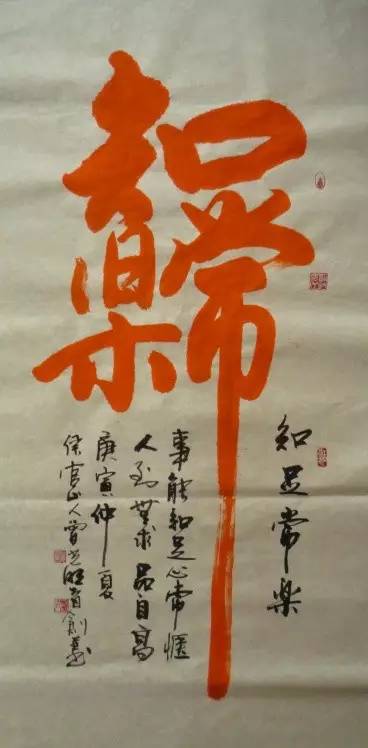 知足常樂
知足常樂
事能知足心常愜
人到無求品自高
庚寅仲夏
山人曾